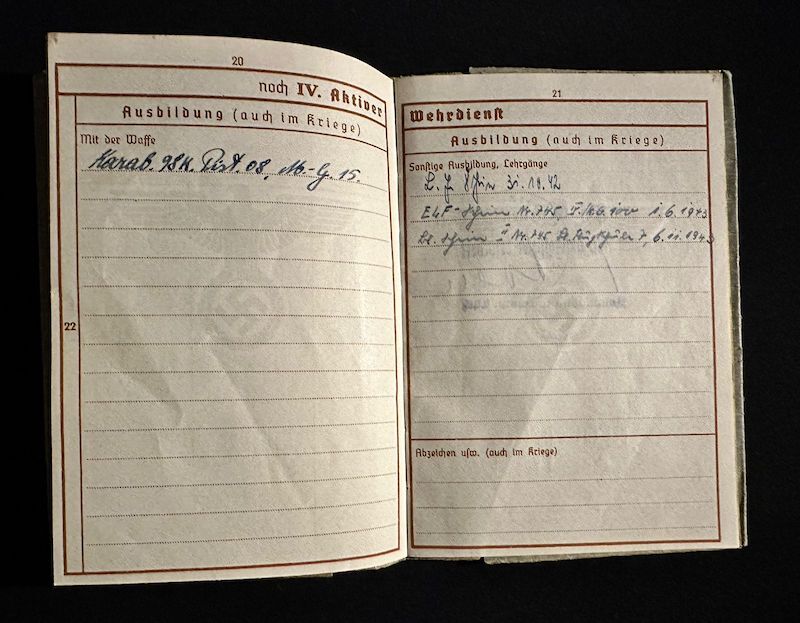 20
noch IV. Aktiver
Ausbildung (auch im Kriege)
Mit der Waffe
Karab. 98K. Pist. 08, M-G. 15.
22
21
Wehrdienst
Ausbildung (auch im Kriege)
Sonstige Ausbildung, Lehrgänge
L. F. Schein 31.10.42
ELF-Schein Nr. 745 1.6.1943
Schein II Nr. 745 7, 6.11.1943
Abzeichen usw. (auch im Kriege)